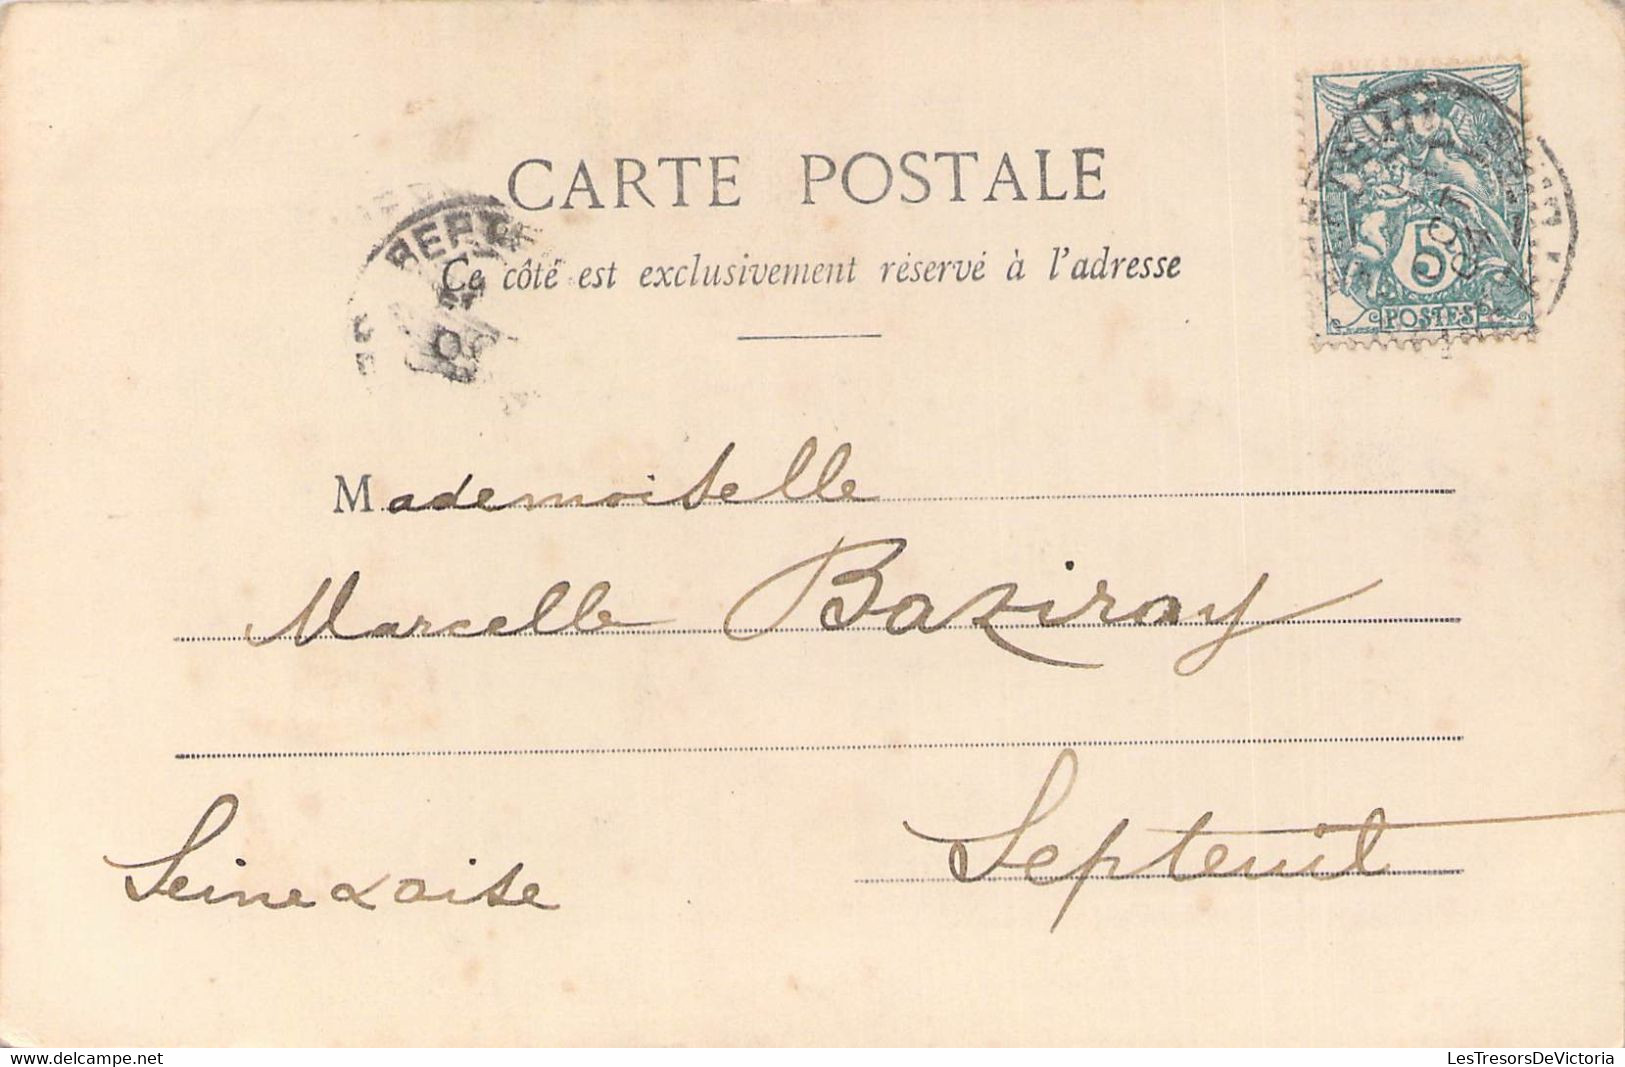 CARTE POSTALE
Ce côté est exclusivement réservé à l'adresse
5
POSTES
Mademoiselle
Marcelle Baziray
Septeuil
Seine & Oise
delcampe.net
LesTresorsDeVictoria